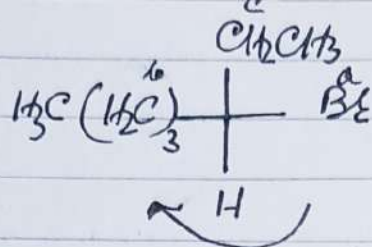 c
CH₂CH₃
b a
H₃C (H₂C)₃ Br
H